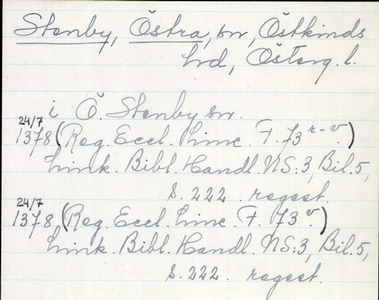 Stenby, Östra, sn, Östkinds
hrd, Österg. l.
i Ö. Stenby sn.
24/7
1378 (Reg. Eccl. Linc. F. 73 r-v.)
Link. Bibl. Handl. NS. 3, Bil. 5,
s. 222. regest.
24/7
1378 (Reg. Eccl. Linc. F. 73 v)
Link. Bibl. Handl. NS. 3, Bil. 5,
s. 222. regest.